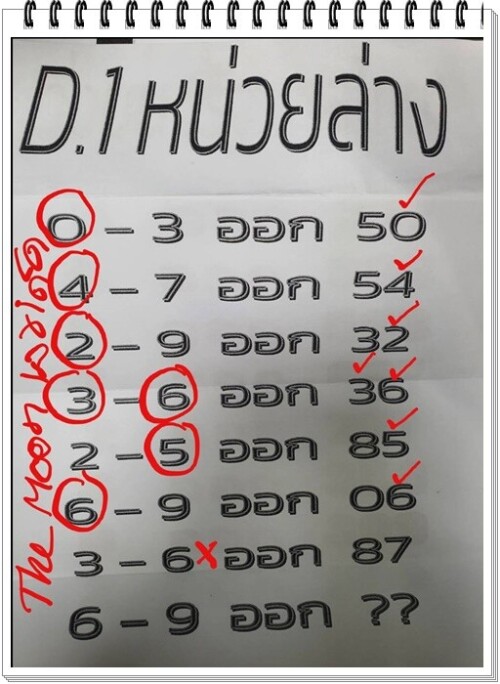 D.1 หน่วยล่าง
0 - 3 ออก 50
4 - 7 ออก 54
2 - 9 ออก 32
3 - 6 ออก 36
2 - 5 ออก 85
6 - 9 ออก 06
3 - 6 x ออก 87
6 - 9 ออก ??
The moon